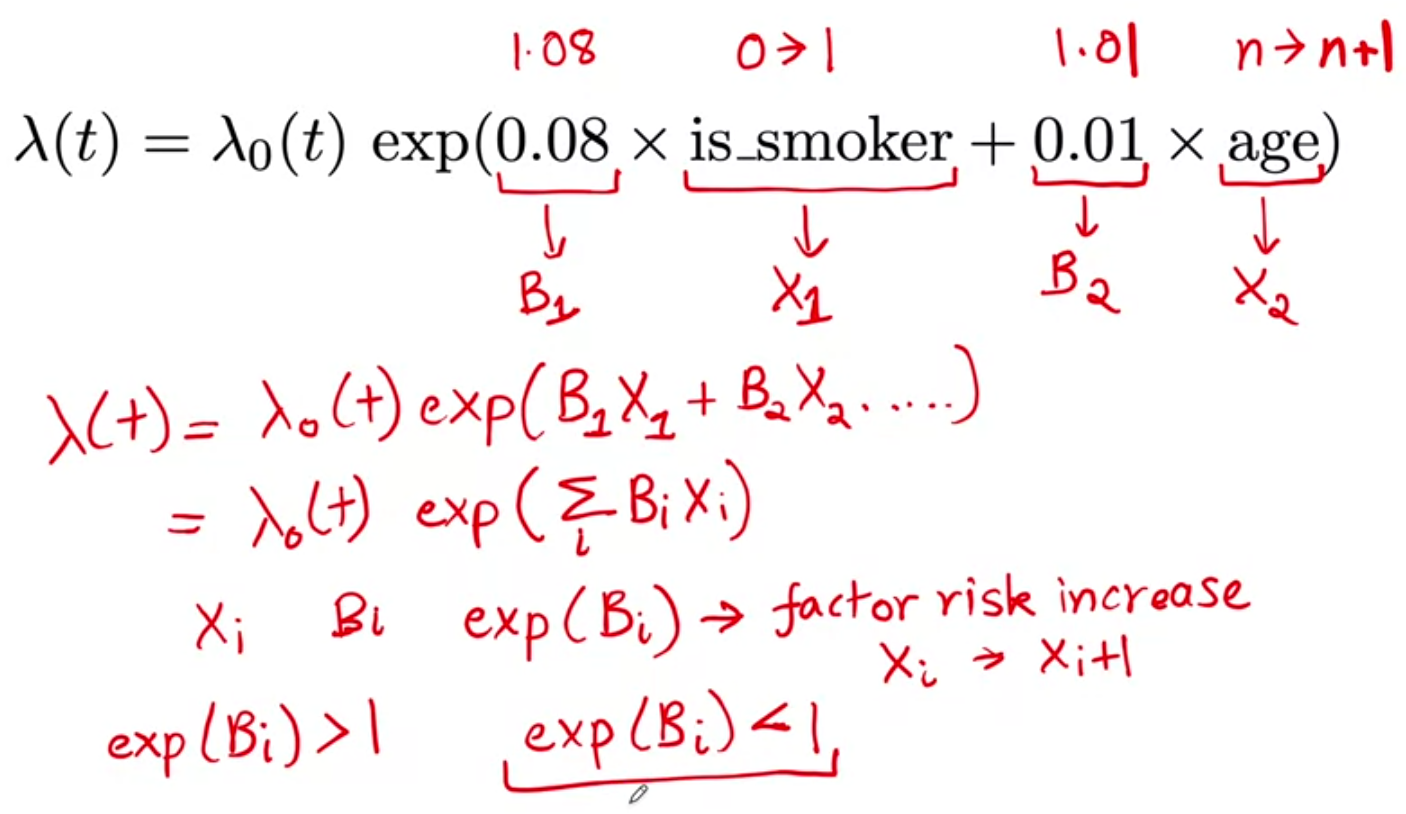 1.08 0→1 1.01 n→n+1
λ(t) = λ₀(t) exp(0.08 × is_smoker + 0.01 × age)
↓ ↓ ↓ ↓
B₁ X₁ B₂ X₂
λ(t) = λ₀(t) exp(B₁X₁ + B₂X₂.....)
= λ₀(t) exp(∑ᵢ BᵢXᵢ)
Xᵢ Bᵢ exp(Bᵢ) → factor risk increase
Xᵢ → Xᵢ+1
exp(Bᵢ) > 1 exp(Bᵢ) < 1